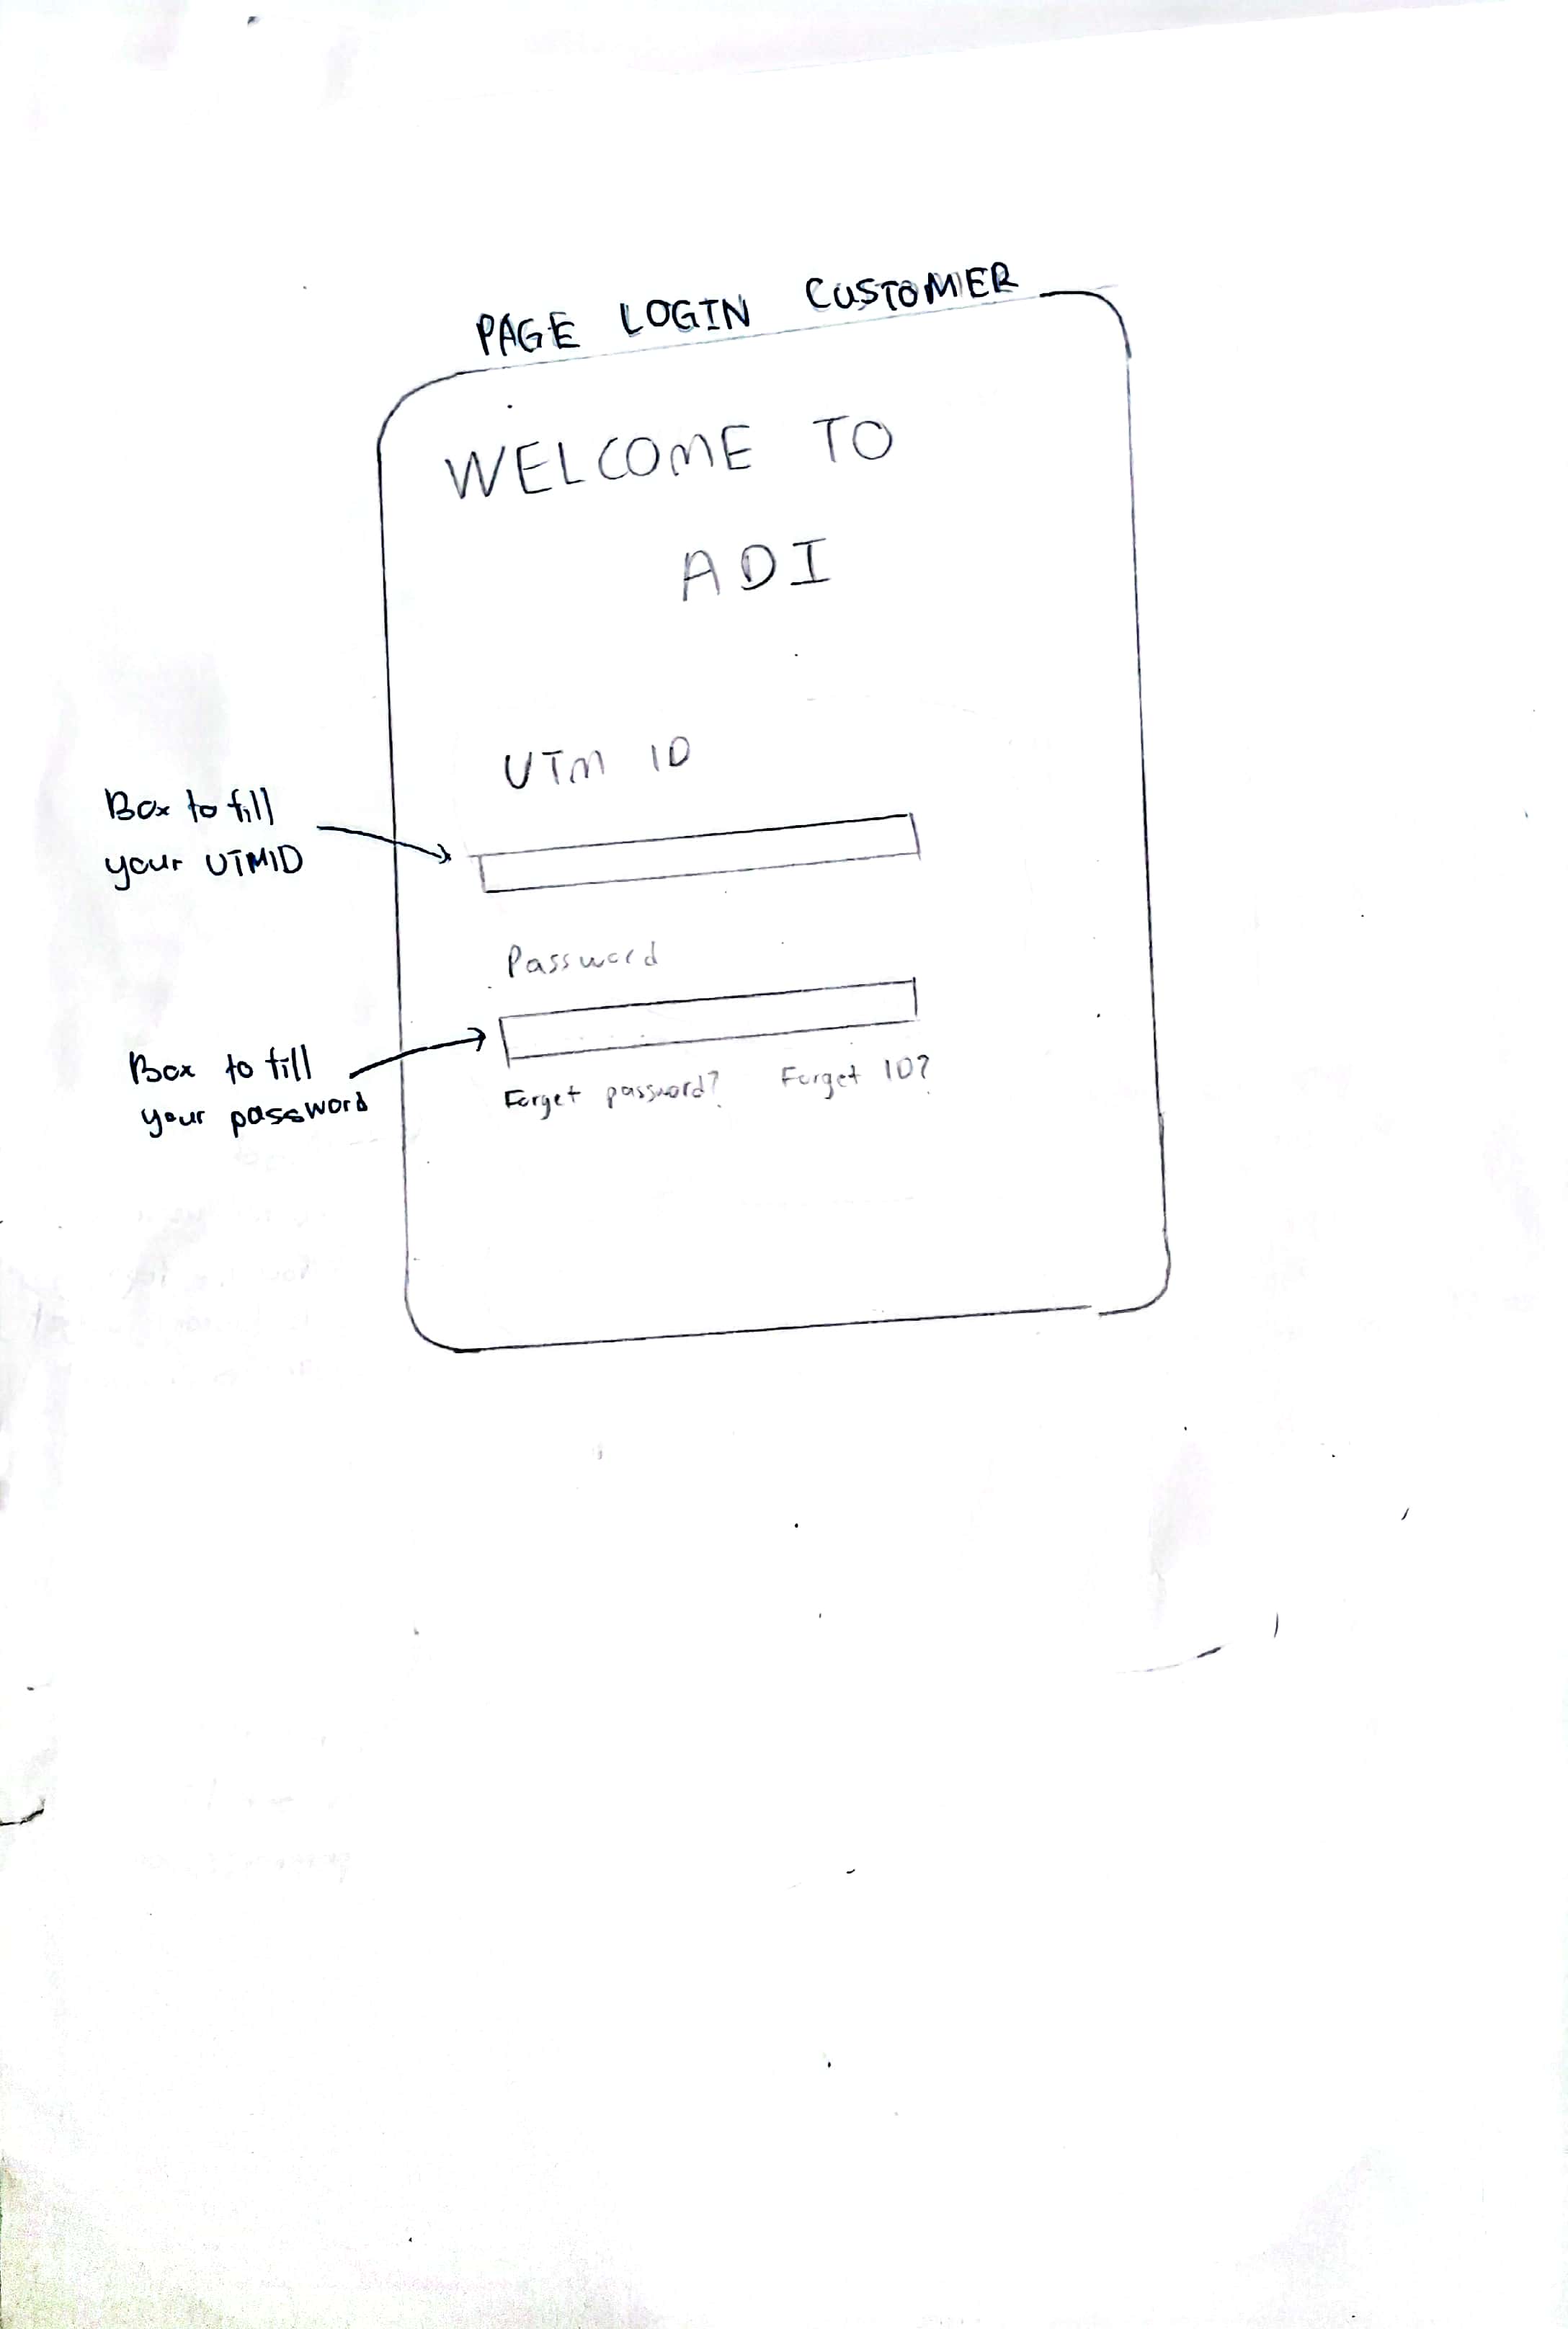 PAGE LOGIN CUSTOMER
WELCOME TO
ADI
UTM ID
Box to fill
your UTMID
Password
Box to fill
your password
Forget password? Forget ID?